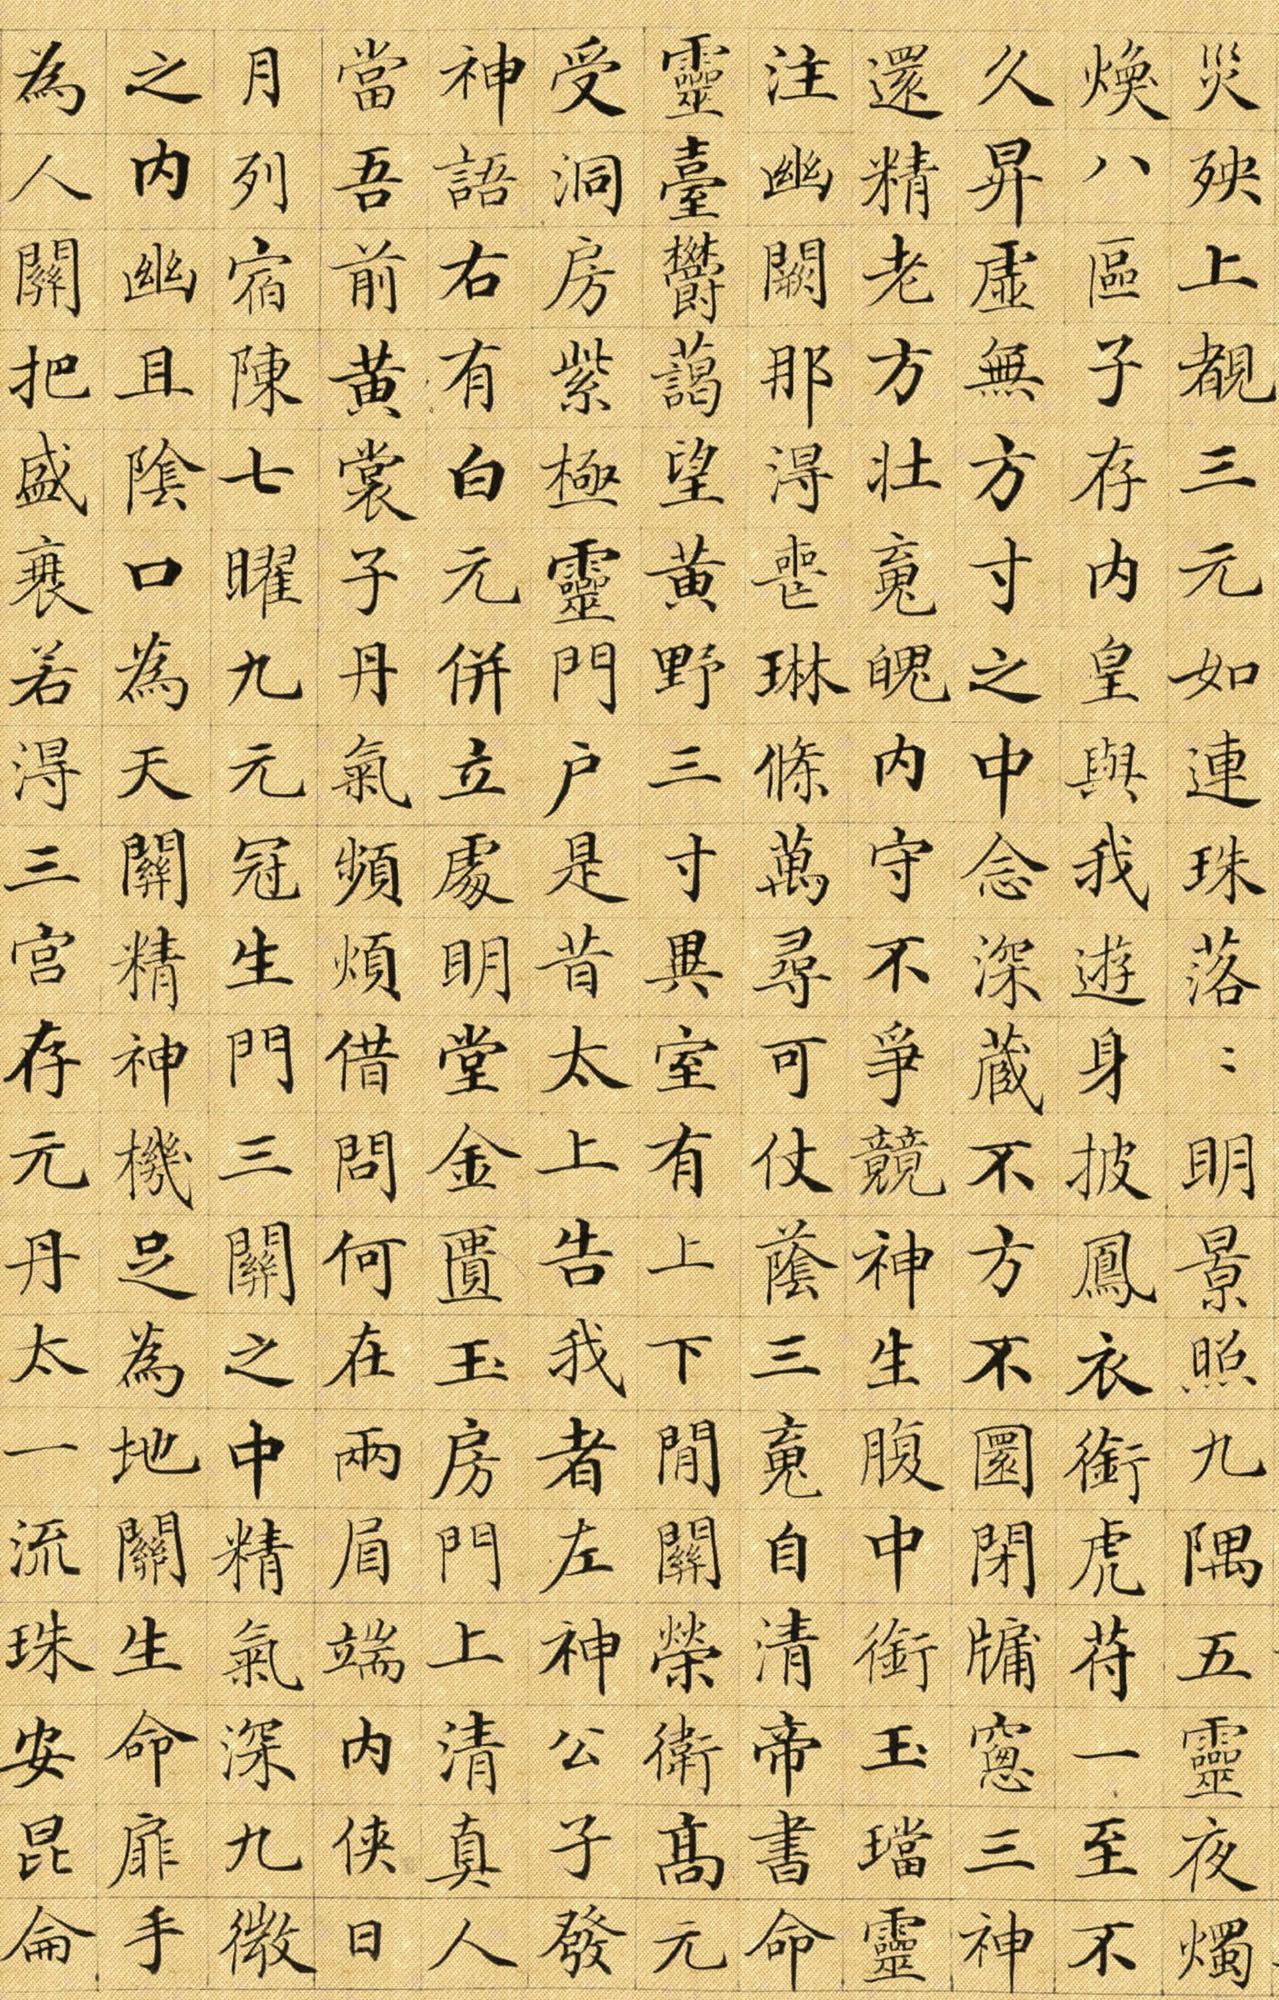 災殃上覩三元如連珠落〻明景照九隅五靈夜燭
煥八區子存内皇與我遊身披鳳衣銜虎苻一至不
久昇虛無方寸之中念深蔵不方不圎閇牗窻三神
還精老方壮䰟魄内守不爭競神生腹中銜玉璫靈
注幽闕那淂䘮琳條萬尋可仗蔭三䰟自清帝書命
靈臺鬱藹望黄野三寸異室有上下閒關榮衛髙元
受洞房紫極靈門户是昔太上告我者左神公子發
神語右有白元併立處明堂金匱玉房門上清真人
當吾前黄裳子丹氣頻煩借問何在兩眉端内侠日
月列宿陳七曜九元冠生門三關之中精氣深九微
之内幽且陰口為天關精神機足為地關生命扉手
為人關把盛衰若淂三宫存元丹太一流珠安昆侖